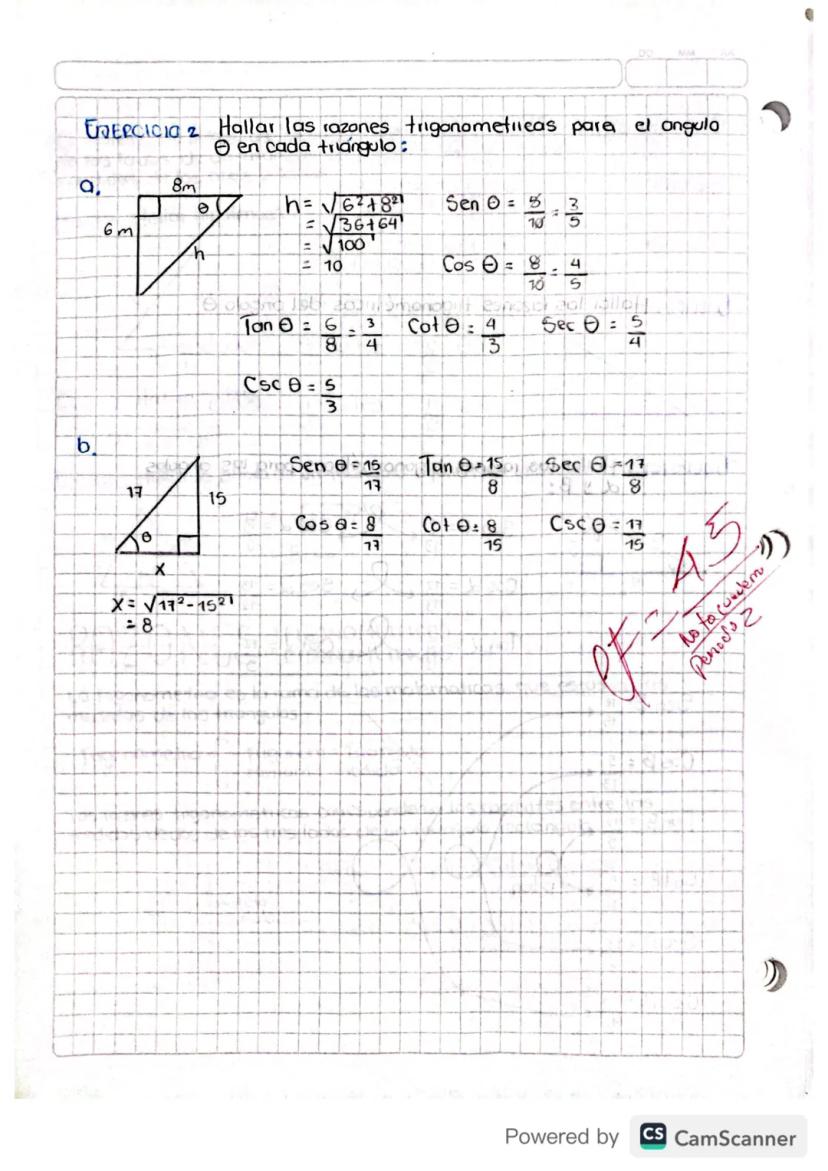 DD MM AA
EJERCICIO 2 Hallar las razones trigonometricas para el angulo
θ en cada triángulo:
a.
8m
6m
θ
h
h = √6²+8²
= √36+64
= √100
= 10
Sen θ = 6/10 = 3/5
Cos θ = 8/10 = 4/5
Tan θ = 6/8 = 3/4 Cot θ = 4/3 Sec θ = 5/4
Csc θ = 5/3
b.
17
15
θ
x
x = √17²-15²
= 8
Sen θ = 15/17 Tan θ = 15/8 Sec θ = 17/8
Cos θ = 8/17 Cot θ = 8/15 Csc θ = 17/15
4.5
Nota cuadern
periodo 2
Powered by CS CamScanner